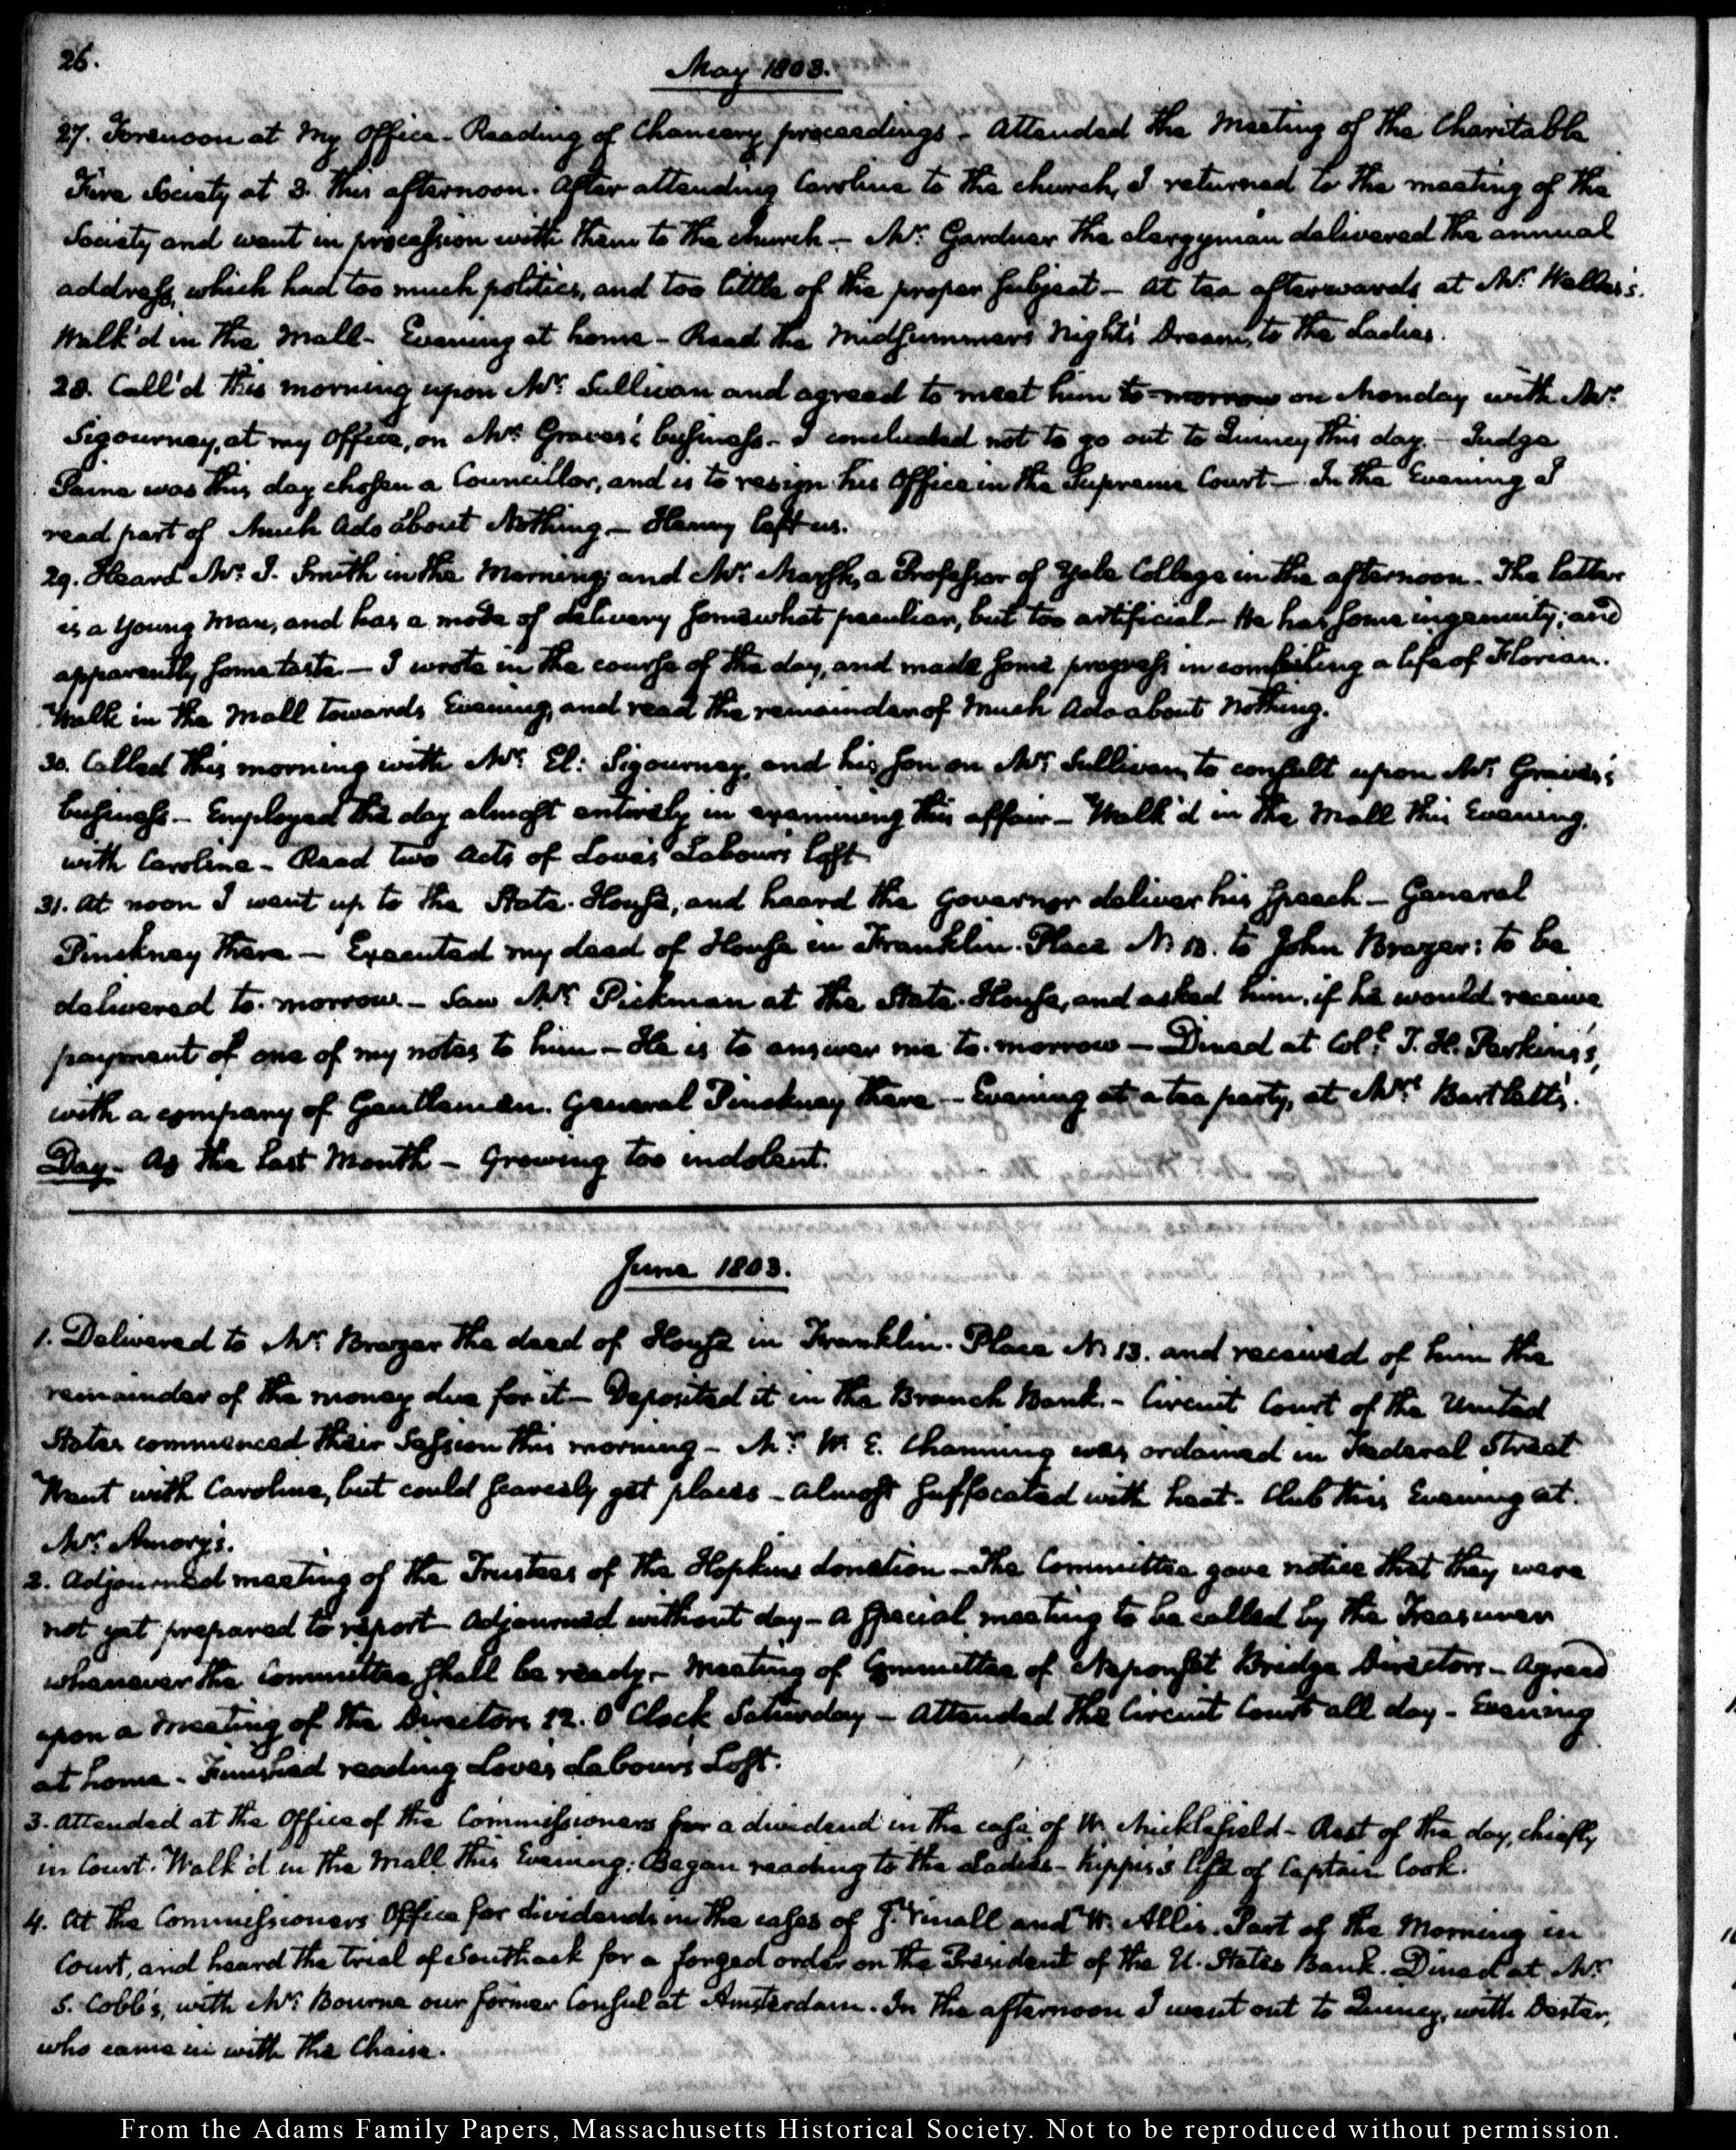 26.
May 1803.
27. Forenoon at my Office - Reading of Chancery proceedings - Attended the Meeting of the Charitable
Fire Society at 3. this afternoon. After attending Caroline to the church, I returned to the meeting of the
Society and went in procession with them to the church - Mr. Gardner the clergyman delivered the annual
address, which had too much politics, and too little of the proper subject - At tea afterwards at Mr. Welles's.
Walk'd in the Mall - Evening at home - Read the Midsummer's Night's Dream, to the Ladies.
28. Call'd this morning upon Mr. Sullivan and agreed to meet him to-morrow on Monday with Mr.
Sigourney, at my Office, on Mr. Graves's business - I concluded not to go out to Quincy this day. - Judge
Paine was this day chosen a Councillor, and is to resign his Office in the Supreme Court - In the Evening I
read part of Much Ado about Nothing - Henry left us.
29. Heard Mr. J. Smith in the Morning; and Mr. Marsh, a Professor of Yale College in the afternoon. The latter
is a young Man, and has a mode of delivery somewhat peculiar, but too artificial - He has some ingenuity; and
apparently some taste - I wrote in the course of the day, and made some progress in compiling a life of Florian.
Walk in the Mall towards Evening, and read the remainder of Much Ado about Nothing.
30. Called this morning with Mr. El: Sigourney, and his son on Mr. Sullivan, to consult upon Mr. Graves's
business - Employed the day almost entirely in examining this affair - Walk'd in the Mall this Evening,
with Caroline - Read two Acts of Love's Labour's lost
31. At noon I went up to the State-House, and heard the Governor deliver his speech - General
Pinckney there - Executed my deed of House in Franklin-Place N. 13. to John Brazer: to be
delivered to-morrow. - Saw Mr. Pickman at the State-House, and asked him, if he would receive
payment of one of my notes to him - He is to answer me to-morrow - Dined at Coll. T. H. Perkins's,
with a company of Gentlemen. General Pinckney there - Evening at a tea party, at Mrs. Bartlett's.
Day - As the last Month - Growing too indolent.
June 1803.
1. Delivered to Mr. Brazer the deed of House in Franklin-Place N. 13. and received of him the
remainder of the money due for it - Deposited it in the Branch Bank. - Circuit Court of the United
States commenced their Session this morning - Mr. W. E. Channing was ordained in Federal Street
Went with Caroline, but could scarcely get places - almost suffocated with heat - Club this Evening at
Mr. Amory's.
2. Adjourned meeting of the Trustees of the Hopkins donation - The Committee gave notice that they were
not yet prepared to report - Adjourned without day - A special meeting to be called by the Treasurer
whenever the Committee shall be ready - Meeting of Committee of Neponset Bridge Directors - Agreed
upon a Meeting of the Directors 12. O'Clock Saturday - Attended the Circuit Court all day - Evening
at home - Finished reading Love's Labour's Lost.
3. Attended at the Office of the Commissioners for a dividend in the case of W. Micklefield - Rest of the day, chiefly
in Court. Walk'd in the Mall this Evening: Began reading to the Ladies - Kippis's life of Captain Cook.
4. At the Commissioners Office for dividends in the cases of J. Vinall and W. Allis. Part of the Morning in
Court, and heard the trial of Southack for a forged order on the President of the U. States Bank. Dined at Mr.
S. Cobb's, with Mr. Bourne our former Consul at Amsterdam. In the afternoon I went out to Quincy, with Dexter,
who came in with the Chaise.
From the Adams Family Papers, Massachusetts Historical Society. Not to be reproduced without permission.